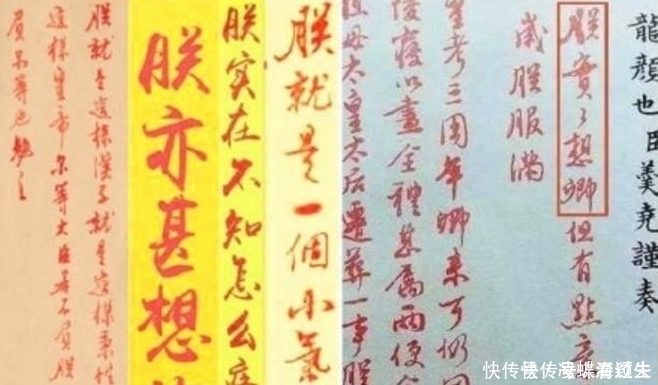 龍顏也臣羹堯謹奏
朕實想卿但有點
朕服滿
皇考三周年卿來可仍同
以盡全禮甚屬兩便
祖母太皇太后遷葬一事朕
朕就是一個小氣
朕实在不知怎么疼
朕亦甚想
朕就是這樣漢子就是這樣秉性
這樣皇帝尔等大臣若不負朕
負尔等也勉之
快传号